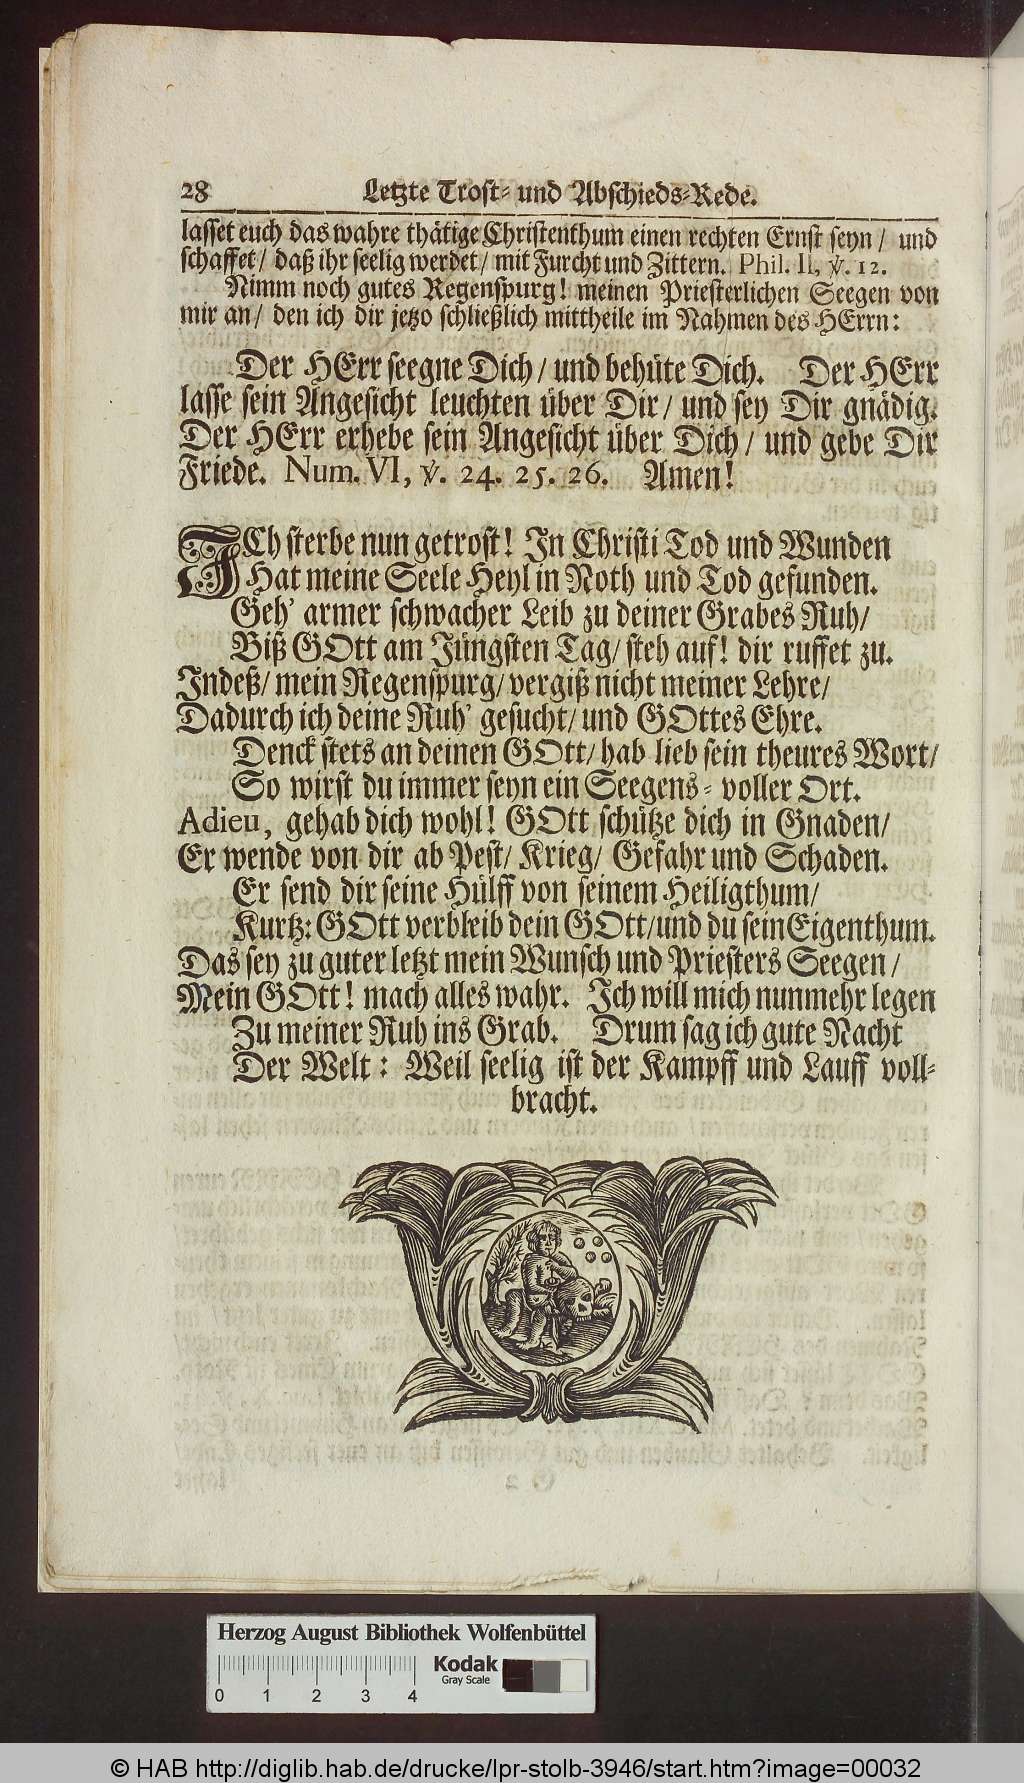 28 Letzte Trost- und Abschieds-Rede.
lasset euch das wahre thätige Christenthum einen rechten Ernst seyn/ und
schaffet/ daß ihr seelig werdet/ mit Furcht und Zittern. Phil. II, v. 12.
Nimm noch gutes Regenspurg! meinen Priesterlichen Seegen von
mir an/ den ich dir jetzo schließlich mittheile im Nahmen des HErrn:
Der HErr seegne Dich/ und behüte Dich. Der HErr
lasse sein Angesicht leuchten über Dir/ und sey Dir gnädig.
Der HErr erhebe sein Angesicht über Dich/ und gebe Dir
Friede. Num. VI, v. 24. 25. 26. Amen!
ICh sterbe nun getrost! In Christi Tod und Wunden
Hat meine Seele Heyl in Noth und Tod gefunden.
Geh' armer schwacher Leib zu deiner Grabes Ruh/
Biß GOtt am Jüngsten Tag/ steh auf! dir ruffet zu.
Indeß/ mein Regenspurg/ vergiß nicht meiner Lehre/
Dadurch ich deine Ruh' gesucht/ und GOttes Ehre.
Denck stets an deinen GOtt/ hab lieb sein theures Wort/
So wirst du immer seyn ein Seegens-voller Ort.
Adieu, gehab dich wohl! GOtt schütze dich in Gnaden/
Er wende von dir ab Pest/ Krieg/ Gefahr und Schaden.
Er send dir seine Hülff von seinem Heiligthum/
Kurtz: GOtt verbleib dein GOtt/ und du sein Eigenthum.
Das sey zu guter letzt mein Wunsch und Priesters Seegen/
Mein GOtt! mach alles wahr. Ich will mich nunmehr legen
Zu meiner Ruh ins Grab. Drum sag ich gute Nacht
Der Welt: Weil seelig ist der Kampff und Lauff voll-
bracht.
Herzog August Bibliothek Wolfenbüttel
Kodak
Gray Scale
0 1 2 3 4
© HAB http://diglib.hab.de/drucke/lpr-stolb-3946/start.htm?image=00032